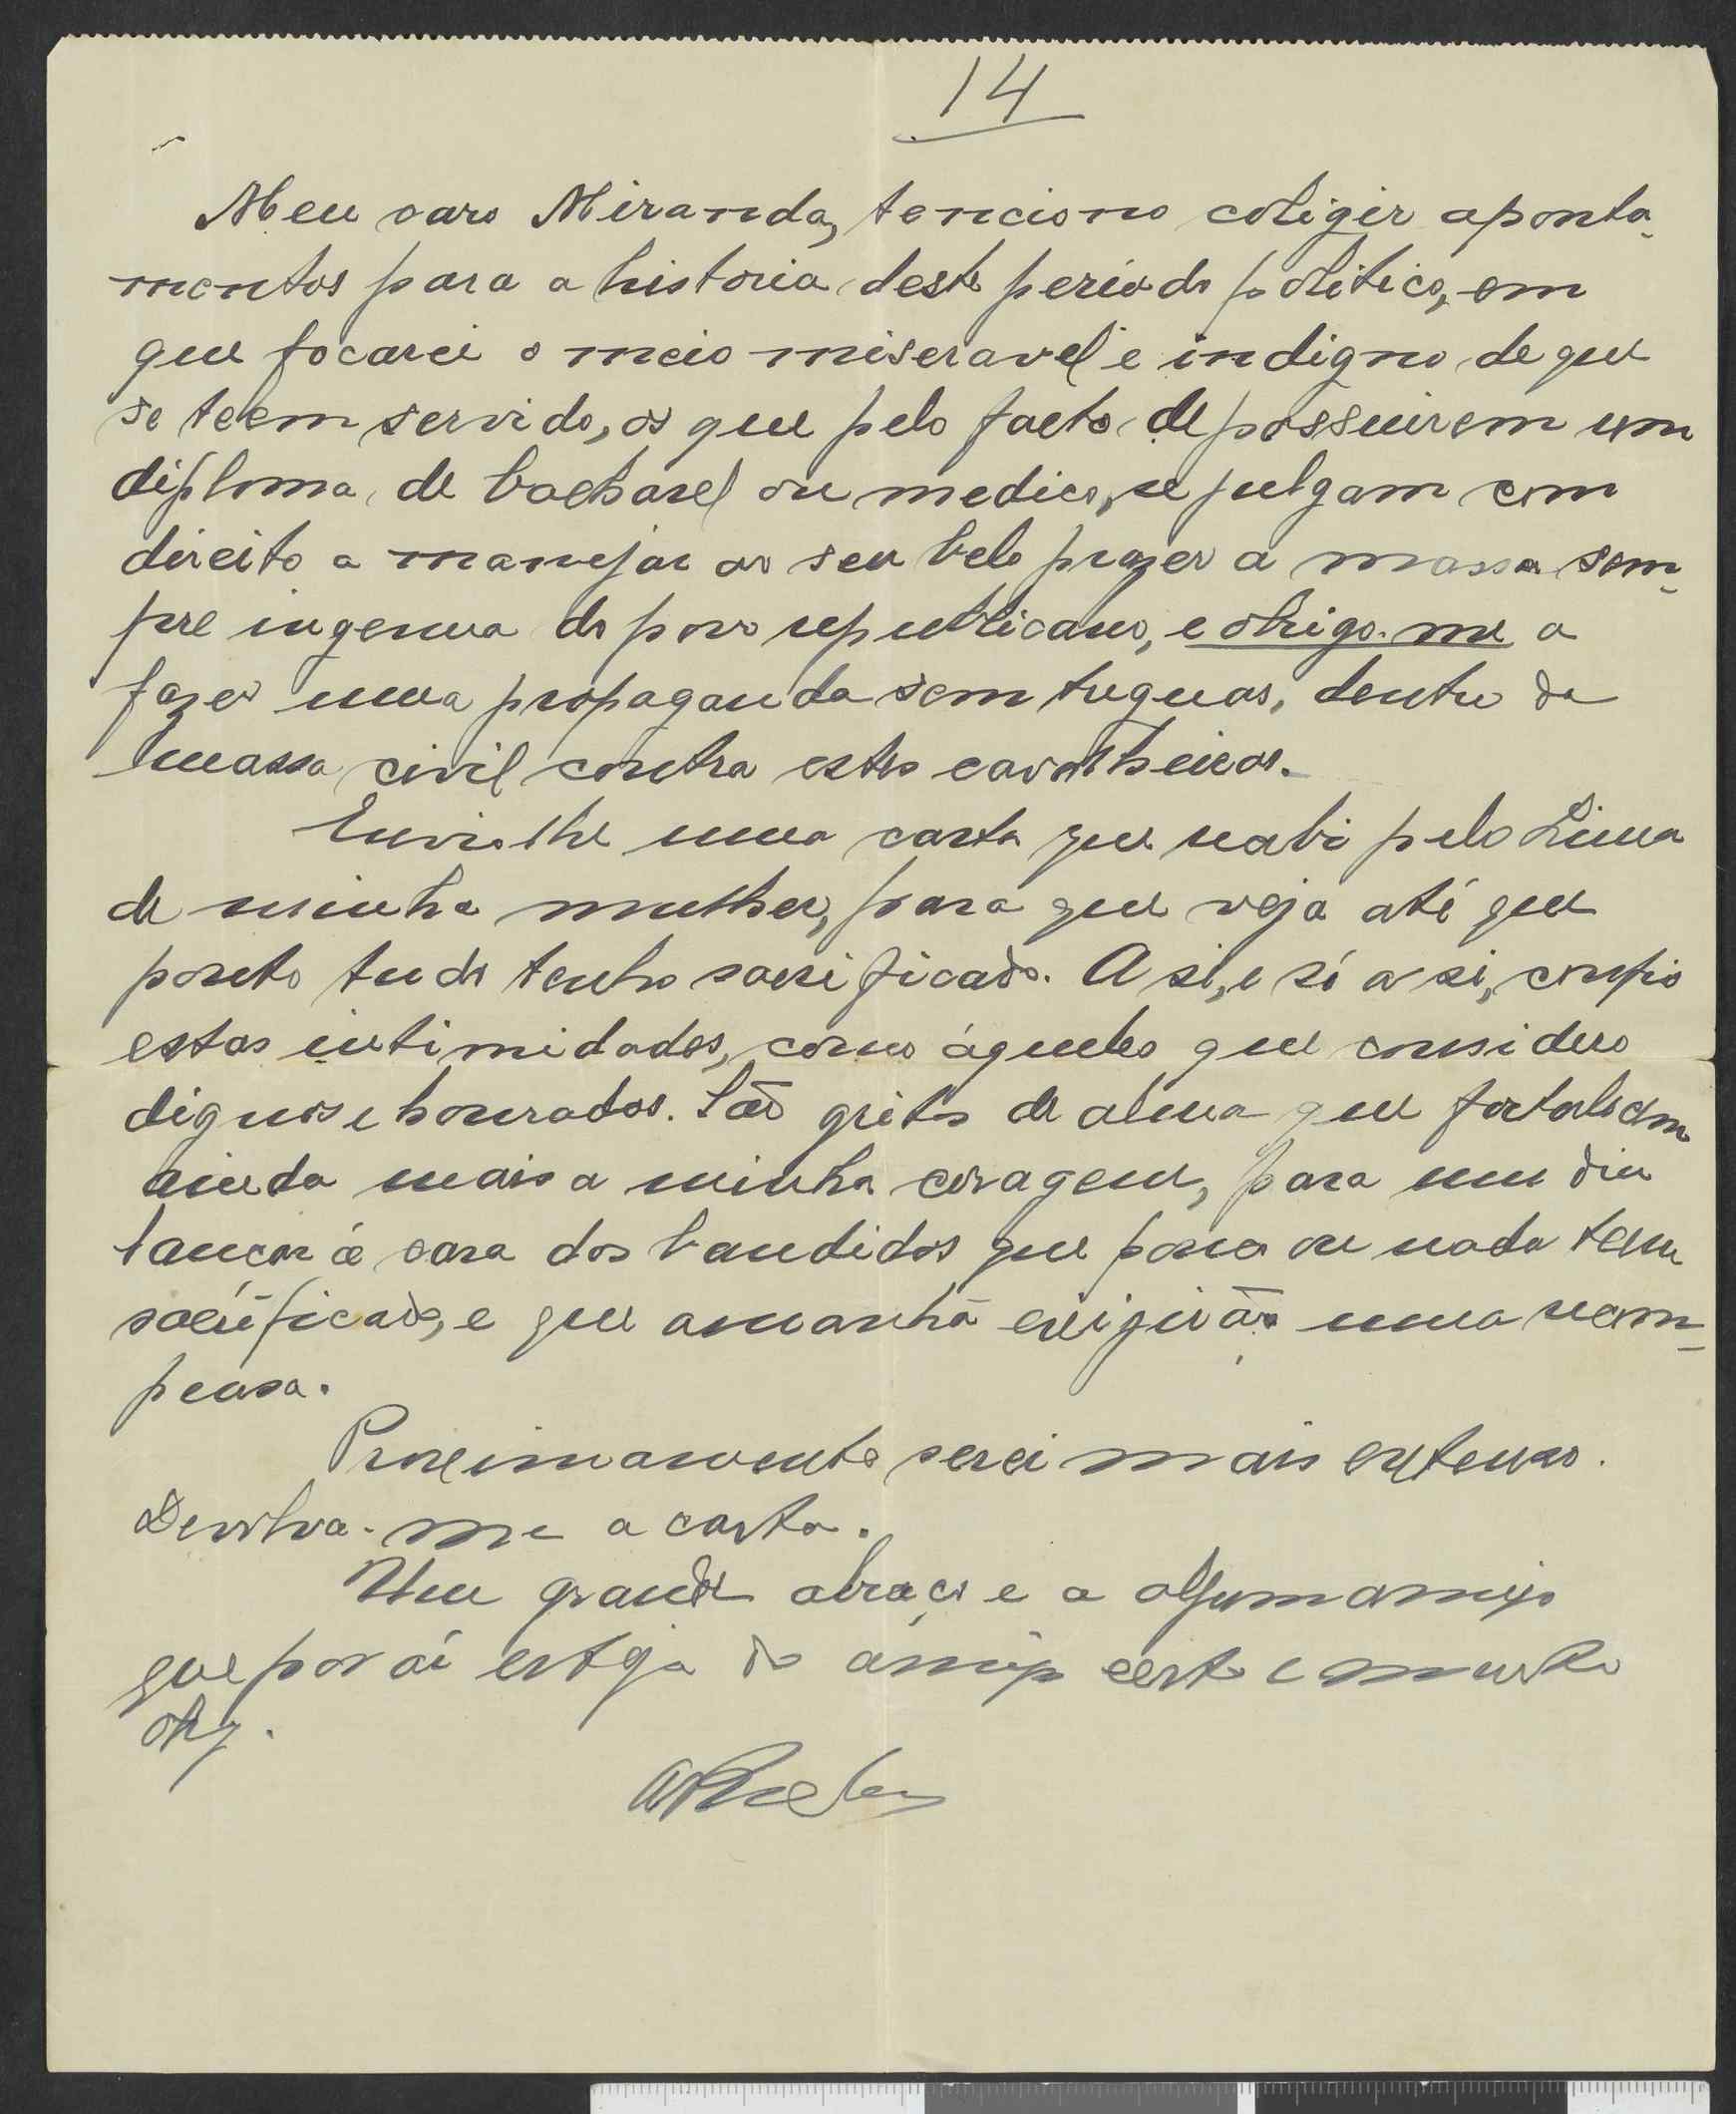 14
Meu caro Miranda, tenciono coligir aponta-
mentos para a historia deste periodo politico, em
que focarei o meio miseravel e indigno de que
se teem servido, os que pelo facto de possuirem um
diploma de bacharel ou medico, se julgam com
direito a manejar ao seu belo prazer a massa sem-
pre ingenua do povo republicano, e obrigo-me a
fazer uma propaganda sem treguas, dentro da
massa civil contra estes cavalheiros.
Envio-lhe uma carta que recebi pelo Lima
de minha mulher, para que veja até que
ponto tudo tenho sacrificado. A si, e só a si, confio
estas intimidades, como áqueles que considero
dignos e honrados. São gritos de alma que fortalecem
ainda mais a minha coragem, para um dia
lançar á cara dos bandidos que pouco ou nada tem
sacrificado, e que amanhã exigirão uma recom-
pensa.
Proximamente serei mais extenso.
Devolva-me a carta.
Um grande abraço e a algum amigo
que por aí esteja do amigo certo e muito
obg.